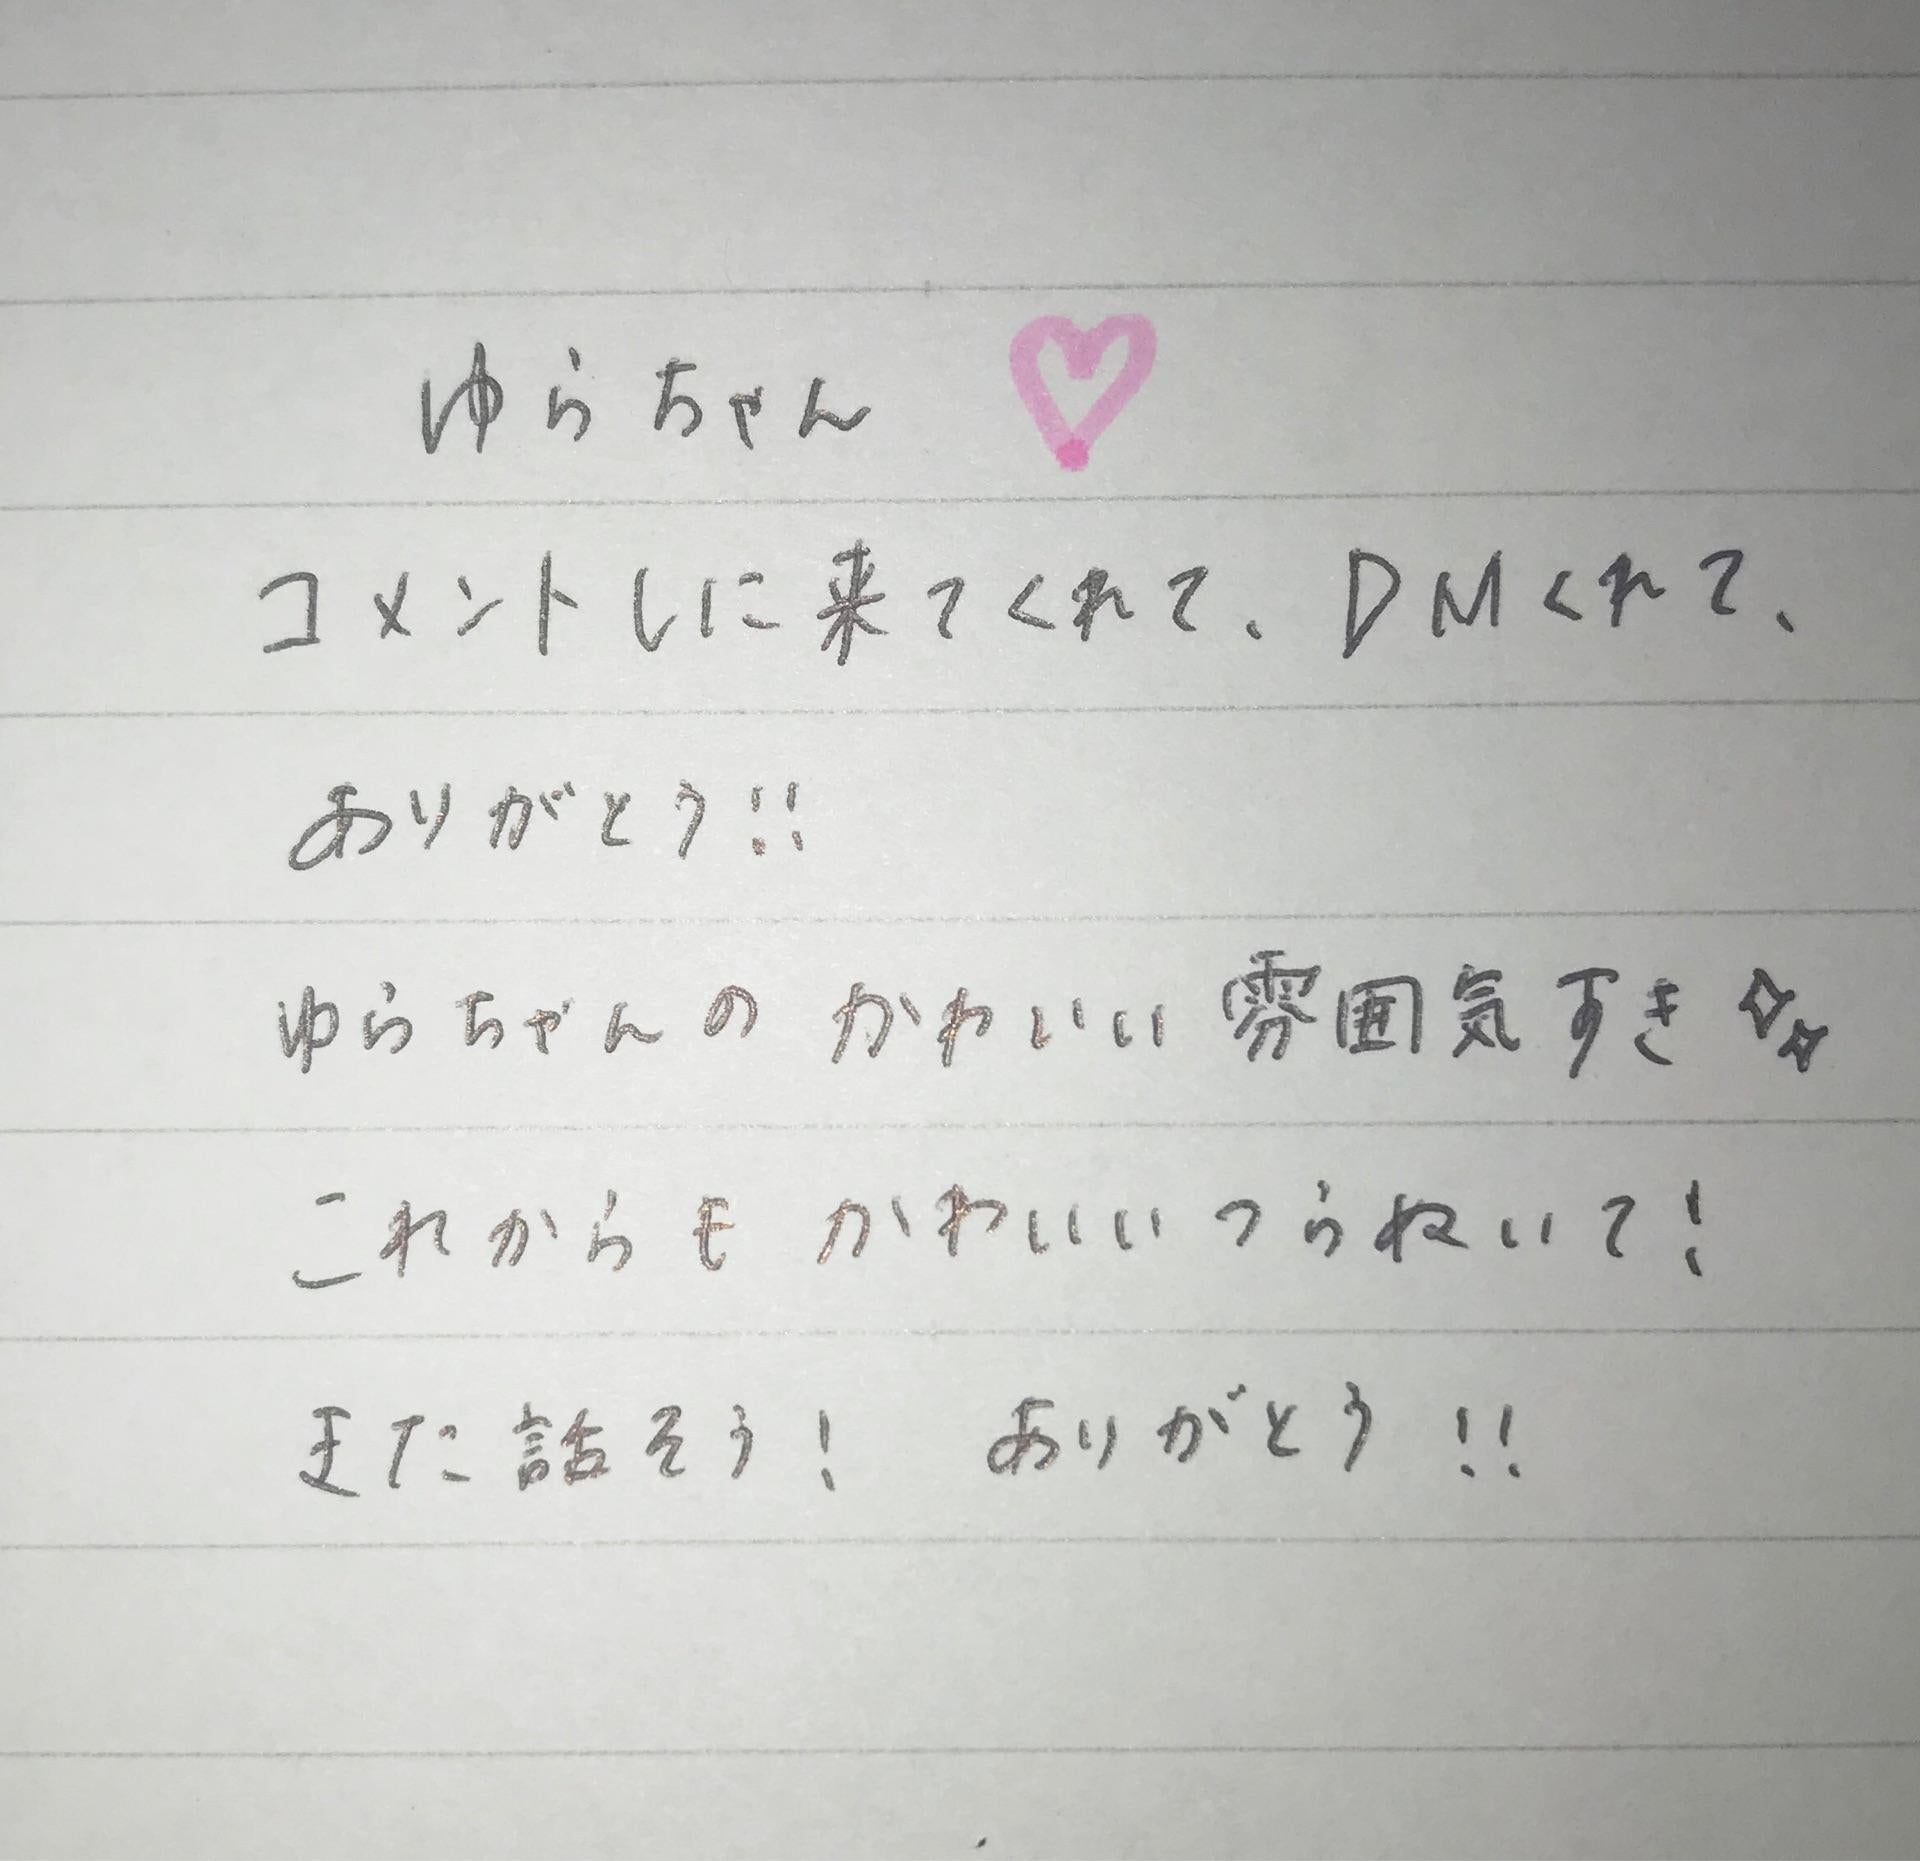 ゆらちゃん♡
コメントしに来てくれて、DMくれて、
ありがとう!!
ゆらちゃんのかわいい雰囲気すき✧✧
これからもかわいいつらぬいて!
また話そう! ありがとう!!